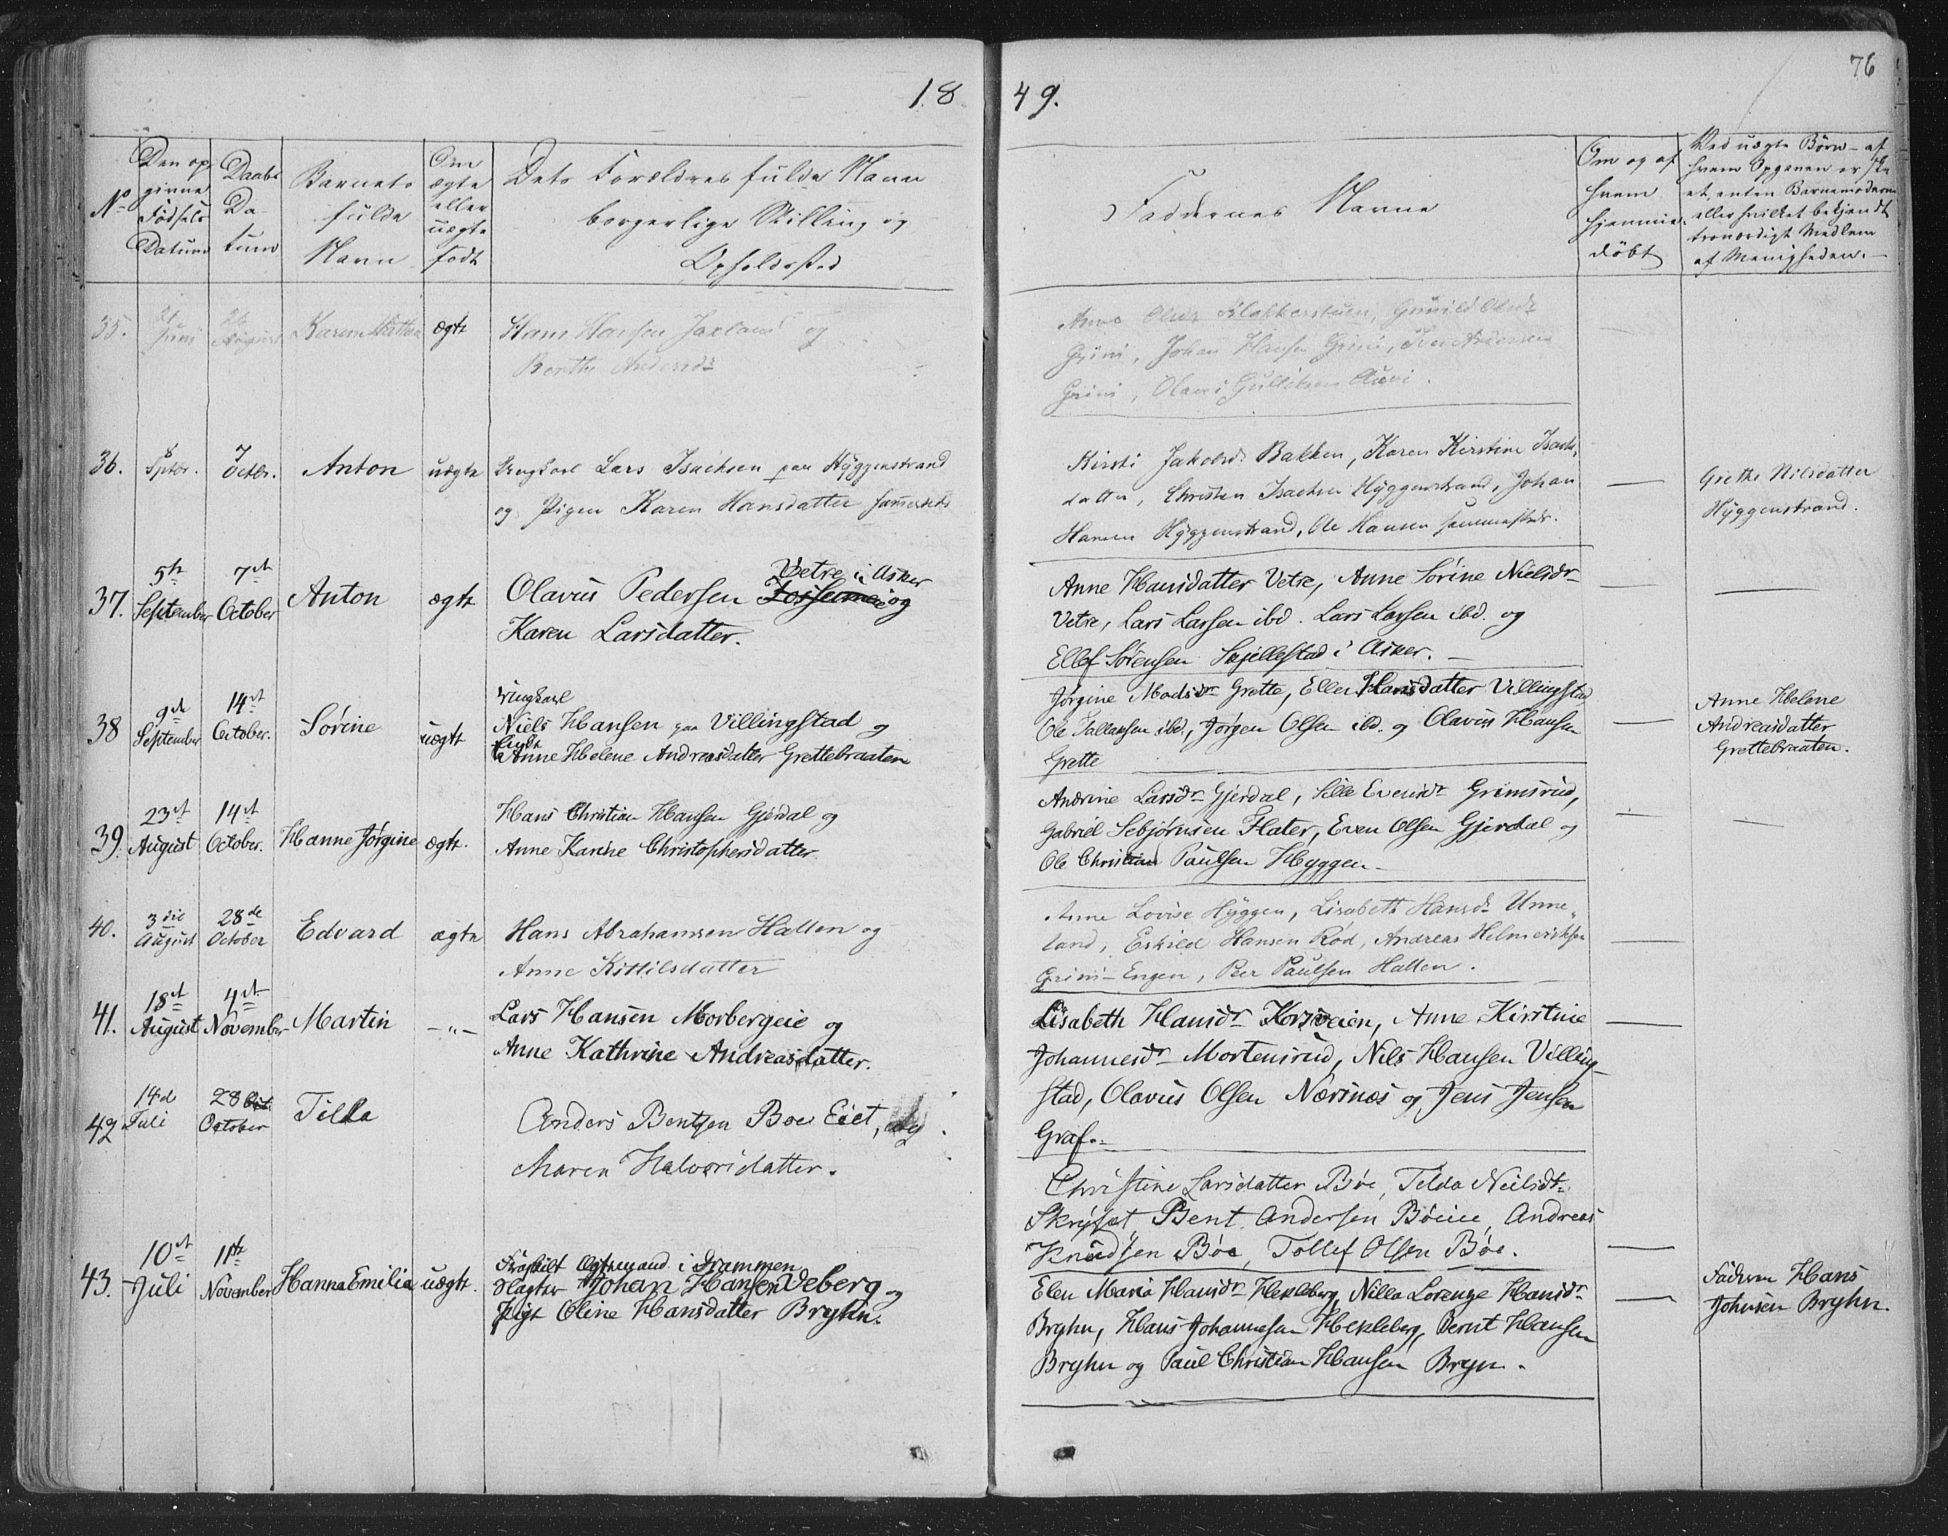 18
49.
76
No
Den op
givne
Fødsels
Datum
Daabs
Da-
tum
Barnets
fulde
Navn
Om
ægte
eller
uægte
født
Dets Forældres fulde Navn
borgerlige Stilling og
Opholdssted
Faddernes Navne
Om og af
hvem
hjemme-
døbt
Ved uægte Børn - af
hvem Opgaven er ske
et, enten Barnemoderen
eller hvilket bekjendt
troværdigt Medlem
af Menigheden.
35.
Juni
August
Karen
ægte
Hans Hansen og
Berthe Andersdr
Anne Olsdr Klokkerstuen, Gunild Olsdr
Grini, Johan Hansen Grini, Iver Andersen
Grini, Olaus Gulliksen
36.
8
Septbr.
7
Octbr.
Anton
uægte
Ungkarl Lars Isachsen paa Hyggenstrand
og Pigen Karen Hansdatter sammesteds
Kirsti Jakobsdr Bakken, Karen Kirstine Isachs-
datter, Christen Isachsen Hyggenstrand, Johan
Hansen Hyggenstrand, Ole Hansen sammesteds.
Grethe Nilsdatter
Hyggenstrand.
37.
5te
September
7de
October
Anton
ægte
Vetre i Asker
Olavus Pedersen og
Karen Larsdatter.
Anne Hansdatter Vetre, Anne Sørine Nielsdr
Vetre, Lars Larsen ibd. Lars Larsen ibd. og
Ellef Sørensen Skjellestad i Asker.
38
9de
September
14de
October.
Sørine
uægte
Ungkarl
Niels Hansen paa Villingstad og
Pige
Anne Helene Andreasdatter Grettebraaten
Jørgine Madsdr Grette, Ellen Hansdatter Villingstad
Ole Tallaksen ibd., Jørgen Olsen ibd. og Olavus Hansen
Grette
Anne Helene
Andreasdatter
Grettebraaten.
39.
23de
August
14de
October.
Hanne Jørgine
ægte.
Hans Christian Hansen Gjerdal og
Anne Karine Christophersdatter
Andrine Larsdr Gjerdal, Sille Evensdr Grimsrud,
Gabriel Sebjørnsen Flater, Even Olsen Gjerdal og
Ole Christian Paulsen Hyggen
40.
3die
August
28de
October
Edvard
ægte
Hans Abrahamsen Hallen og
Anne Kittilsdatter
Anne Lovise Hyggen, Lisabeth Hansdr Unne-
land, Eskild Hansen Rød, Andreas Helmeriksen
Grini-Engen, Peer Paulsen Hallen.
41.
18de
August
4de
November
Martin
-"-
Lars Hansen Morbergeie og
Anne Kathrine Andreasdatter.
Lisabeth Hansdr Korsveien, Anne Kirstine
Johannesdr Mortensrud, Nils Hansen Villing-
stad, Olavus Olsen Nærsnæs og Jens Jensen
Graf.
42
14de
Juli
28
October
Tilda
Anders Bentsen Boe Eiet, og
Maren Halvorsdatter.
Christine Larsdatter Bøe, Tilda Neilsdtr
Skryset Bent Andersen Bøeie, Andreas
Knudsen Bøe, Tollef Olsen Bøe.
43.
10de
Juli
11te
November
Hanna Emilia
uægte.
Fraskilt i Drammen
Slagter Johan Hansen Veberg og
Pige Oline Hansdatter Bryhn.
Elen Maria Hansdr Hekleberg, Nilla Lorenze Hansdr
Bryhn, Hans Johannesen Hekleberg, Bernt Hansen
Bryhn og Paul Christian Hansen Bryn.
Faderen Hans
Johnsen Bryhn.